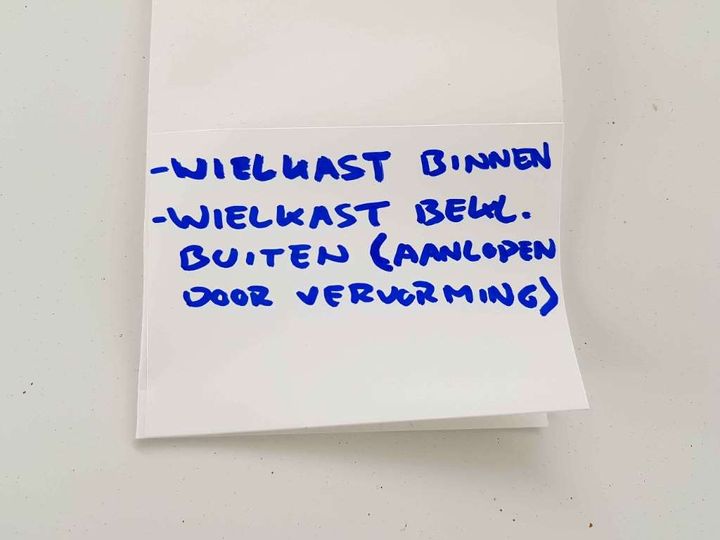 -WIELKAST BINNEN
-WIELKAST BEKL.
BUITEN (AANLOPEN
DOOR VERVORMING)